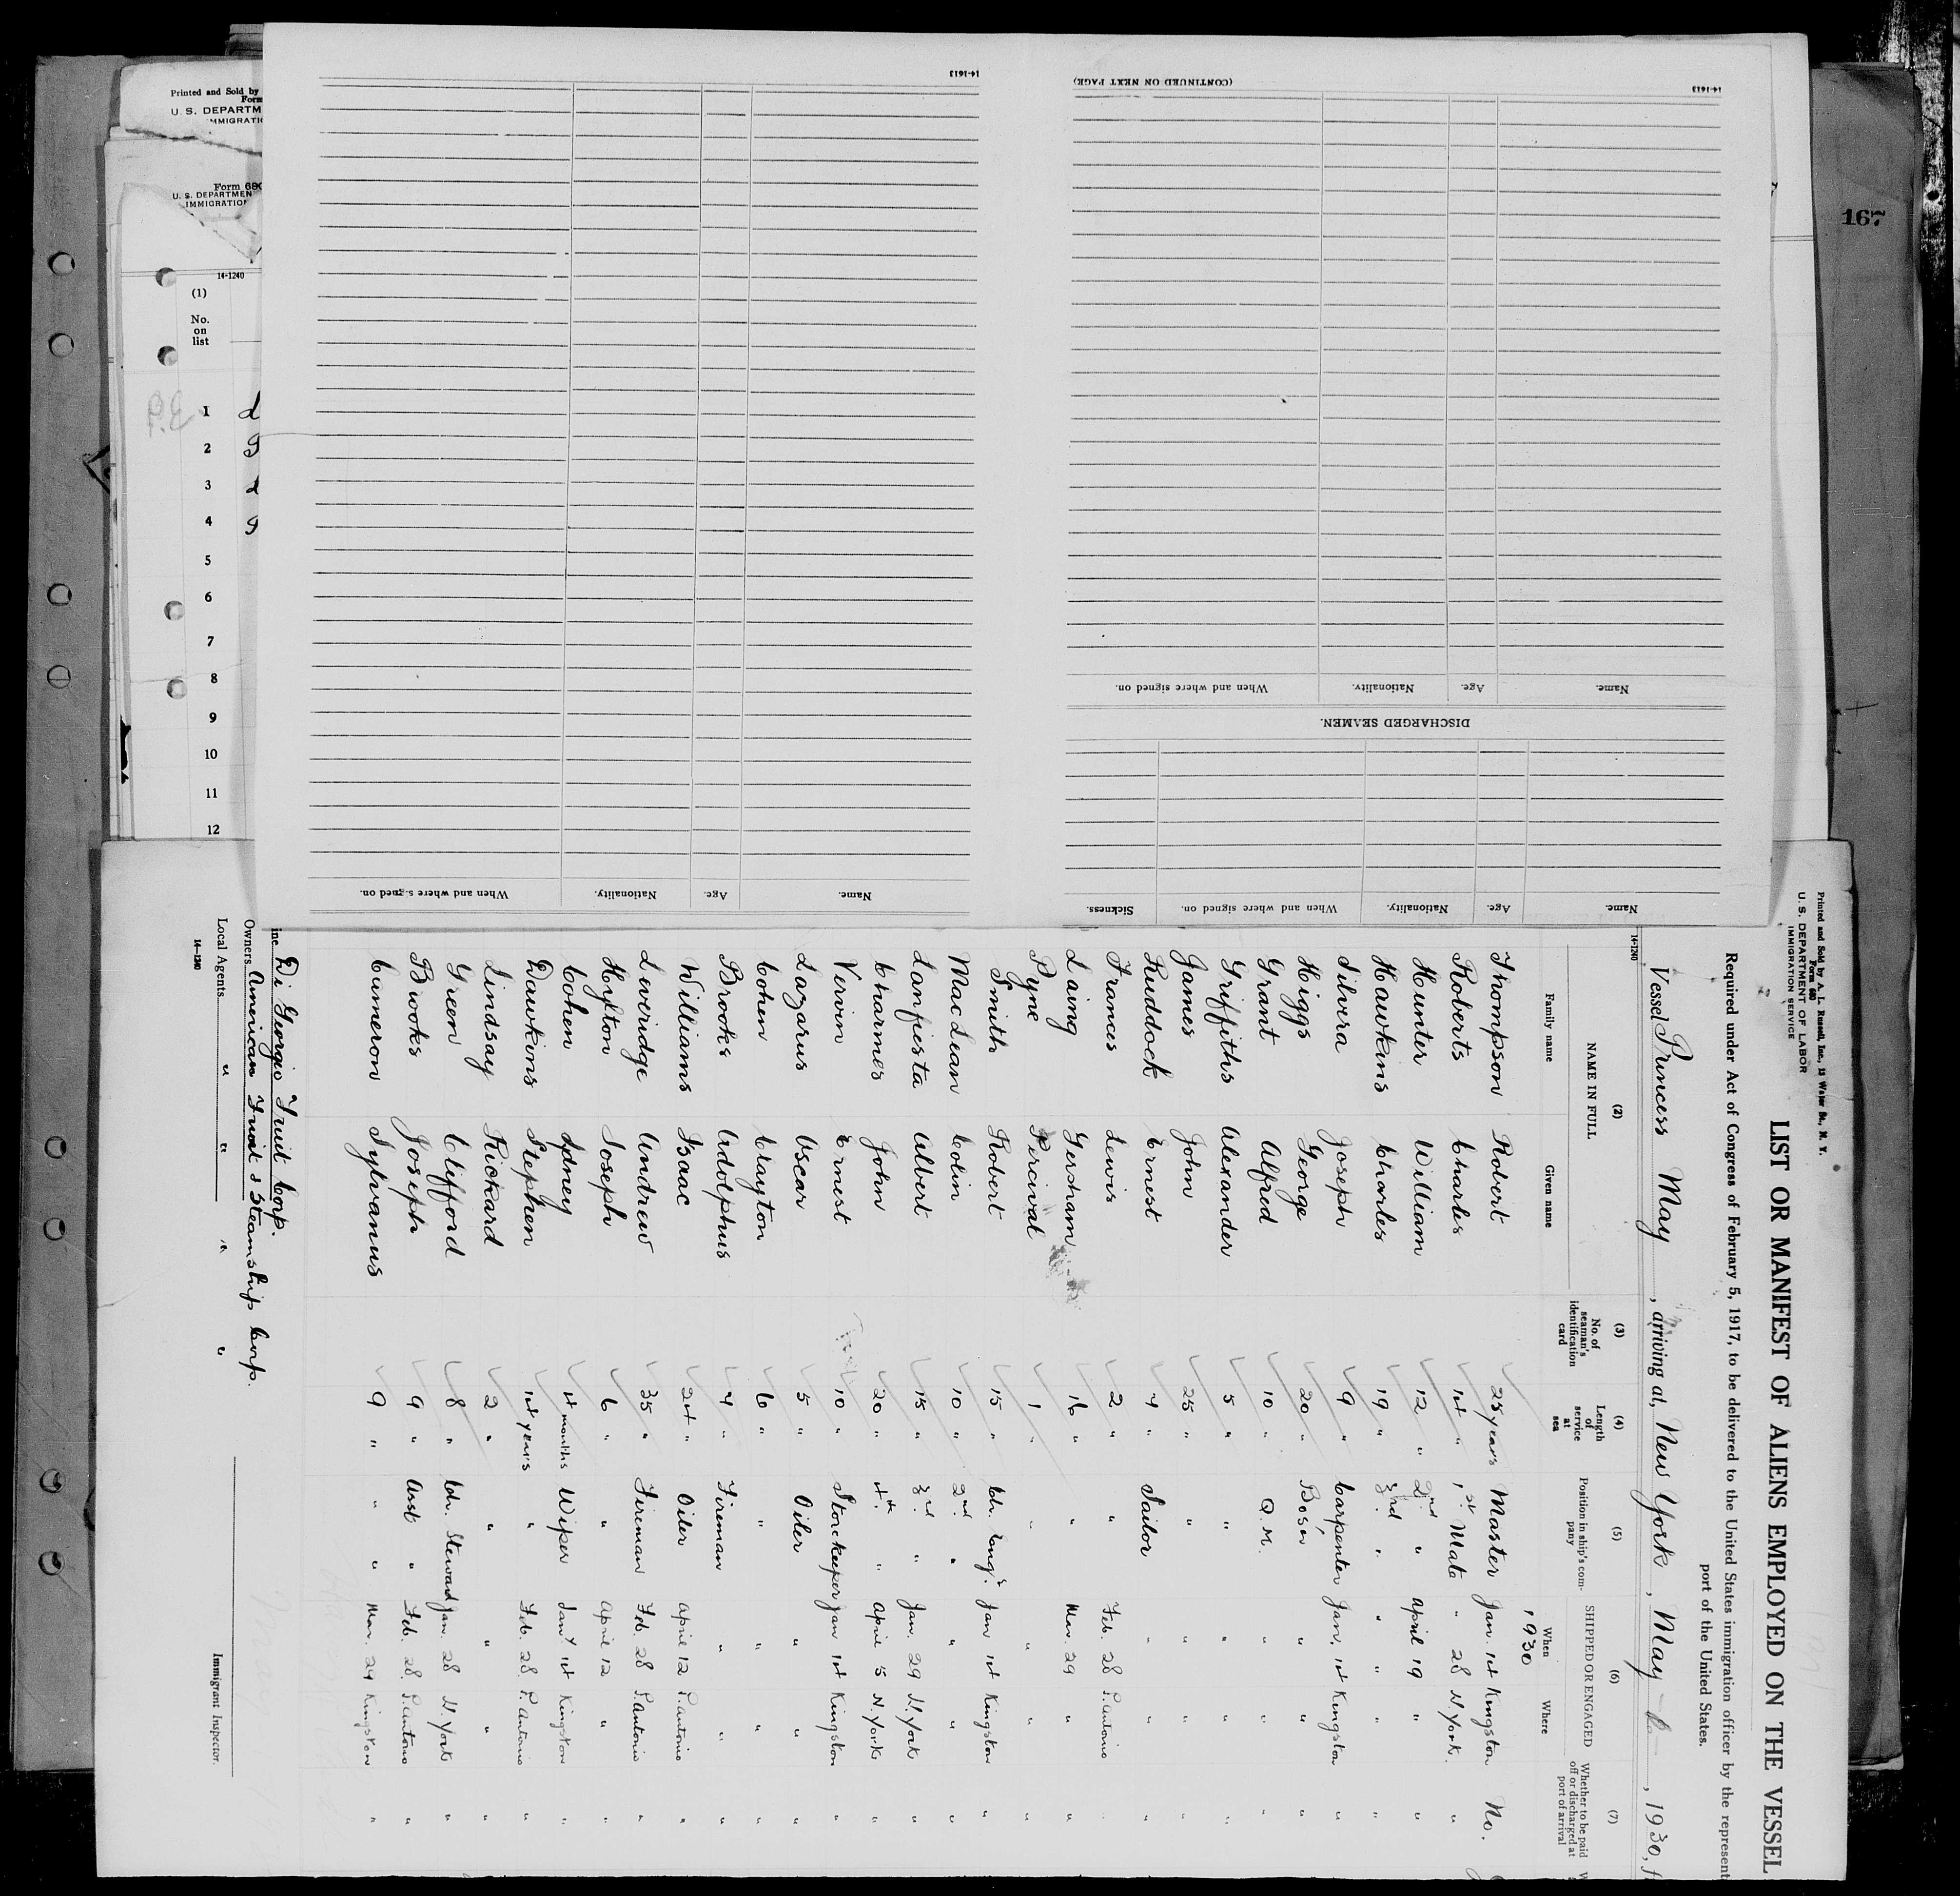 167
Printed and Sold by
Form
U. S. DEPARTM
IMMIGRATIO
Form 680
U. S. DEPARTMEN
IMMIGRATION
14-1240
(1)
No.
on
list
1
2
3
4
5
6
7
8
9
10
11
12
14-1613
(CONTINUED ON NEXT PAGE)
14-1613
Name. Age. Nationality. When and where signed on.
DISCHARGED SEAMEN.
Name. Age. Nationality. When and where signed on. Sickness.
Name. Age. Nationality. When and where signed on.
Printed and Sold by A. L. Russell, Inc., 15 Water St., N. Y.
Form 680
U. S. DEPARTMENT OF LABOR
IMMIGRATION SERVICE
LIST OR MANIFEST OF ALIENS EMPLOYED ON THE VESSEL
Required under Act of Congress of February 5, 1917, to be delivered to the United States immigration officer by the represent
port of the United States.
Vessel Princess May, arriving at New York, May, 1930, f
14-1240
(2) (3) (4) (5) (6) (7)
NAME IN FULL No. of seaman's identification card Length of service at sea Position in ship's company SHIPPED OR ENGAGED Whether to be paid off or discharged at port of arrival
Family name Given name When Where
, 1930
Thompson Robert 25 years Master Jan. 1st Kingston No.
Roberts Charles 14 " 1st Mate " 28 N. York. "
Hunter William 12 " 2nd " April 19 " "
Hawkins Charles 19 " 3rd " " " "
Silvera Joseph 9 " Carpenter Jan. 1st Kingston "
Higgs George 20 " Bos'n " " "
Grant Alfred 10 " Q. M. " " "
Griffiths Alexander 5 " " " " "
James John 25 " " " " "
Ruddock Ernest 4 " Sailor " " "
Frances Lewis 2 " " Feb. 28 P. antonio
Laing Gersham 16 " " Mar. 29 " "
Pyne Percival 1 " " " " "
Smith Robert 15 " Ch. Engr. Jan 1st Kingston "
MacLean Colin 10 " 2nd " " " "
Lanfiesta Albert 15 " 3rd " Jan. 29 N. York "
Charmes John 20 " 4th " April 5 N. York "
Vervin Ernest 10 " Storekeeper Jan 1st Kingston "
Lazarus Oscar 5 " Oiler " " "
Cohen Clayton 6 " " " " "
Brooks Adolphus 4 " Fireman " " "
Williams Isaac 24 " Oiler April 12 P. antonio "
Leveridge Andrew 35 " Fireman Feb. 28 P. antonio "
Hylton Joseph 6 " " April 12 " "
Cohen Sydney 4 months Wiper Jany 1st Kingston "
Dawkins Stephen 14 years " Feb. 28 P. antonio "
Lindsay Rickard 2 " " " " "
Green Clifford 8 " Ch. Steward Jan. 28 N. York "
Brooks Joseph 9 " Asst " Feb. 28 P. antonio "
Cameron Sylvanus 9 " " " Mar. 29 Kingston "
ine Di Georgio Fruit Corp.
Owners American Fruit & Steamship Corp.
Local Agents " " " "
Immigrant Inspector.
14-1240